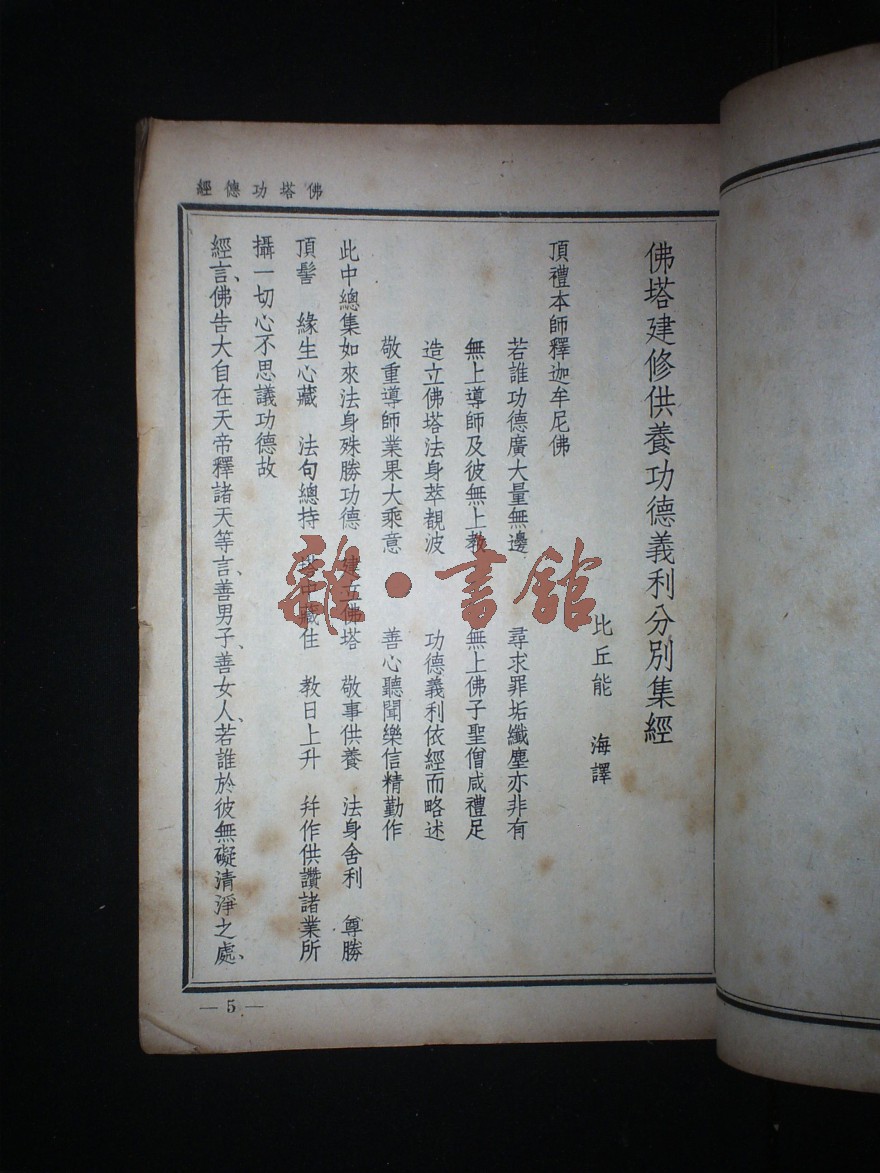 佛塔功德經
佛塔建修供養功德義利分別集經
比丘能　海譯
頂禮本師釋迦牟尼佛
若誰功德廣大量無邊　尋求罪垢纖塵亦非有
無上導師及彼無上教　無上佛子聖僧咸禮足
造立佛塔法身萃覩波　功德義利依經而略述
敬重導師業果大乘意　善心聽聞樂信精勤作
此中總集如來法身殊勝功德　建立佛塔　敬事供養　法身舍利　尊勝
頂髻　緣生心藏　法句總持　塔中藏住　教日上升　幷作供讚諸業所
攝一切心不思議功德故
經言、佛告大自在天帝釋諸天等言、善男子、善女人、若誰於彼無礙清淨之處、
— 5 —
雜·書館